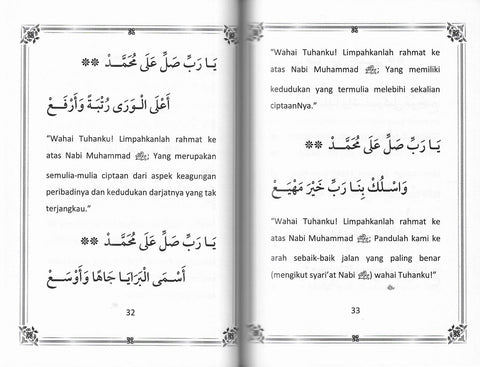 يَا رَبِّ صَلِّ عَلَى مُحَمَّدْ **
أَعْلَى الْوَرَى رُتْبَةً وَأَرْفَعْ
“Wahai Tuhanku! Limpahkanlah rahmat ke
atas Nabi Muhammad ﷺ; Yang merupakan
semulia-mulia ciptaan dari aspek keagungan
peribadinya dan kedudukan darjatnya yang tak
terjangkau.”
يَا رَبِّ صَلِّ عَلَى مُحَمَّدْ **
أَسْمَى الْبَرَايَا جَاهًا وَأَوْسَعْ
32
“Wahai Tuhanku! Limpahkanlah rahmat ke
atas Nabi Muhammad ﷺ; Yang memiliki
kedudukan yang termulia melebihi sekalian
ciptaanNya.”
يَا رَبِّ صَلِّ عَلَى مُحَمَّدْ **
وَاسْلُكْ بِنَا رَبِّ خَيْرَ مَهْيَعْ
“Wahai Tuhanku! Limpahkanlah rahmat ke
atas Nabi Muhammad ﷺ; Pandulah kami ke
arah sebaik-baik jalan yang paling benar
(mengikut syari’at Nabi ﷺ) wahai Tuhanku!”
33